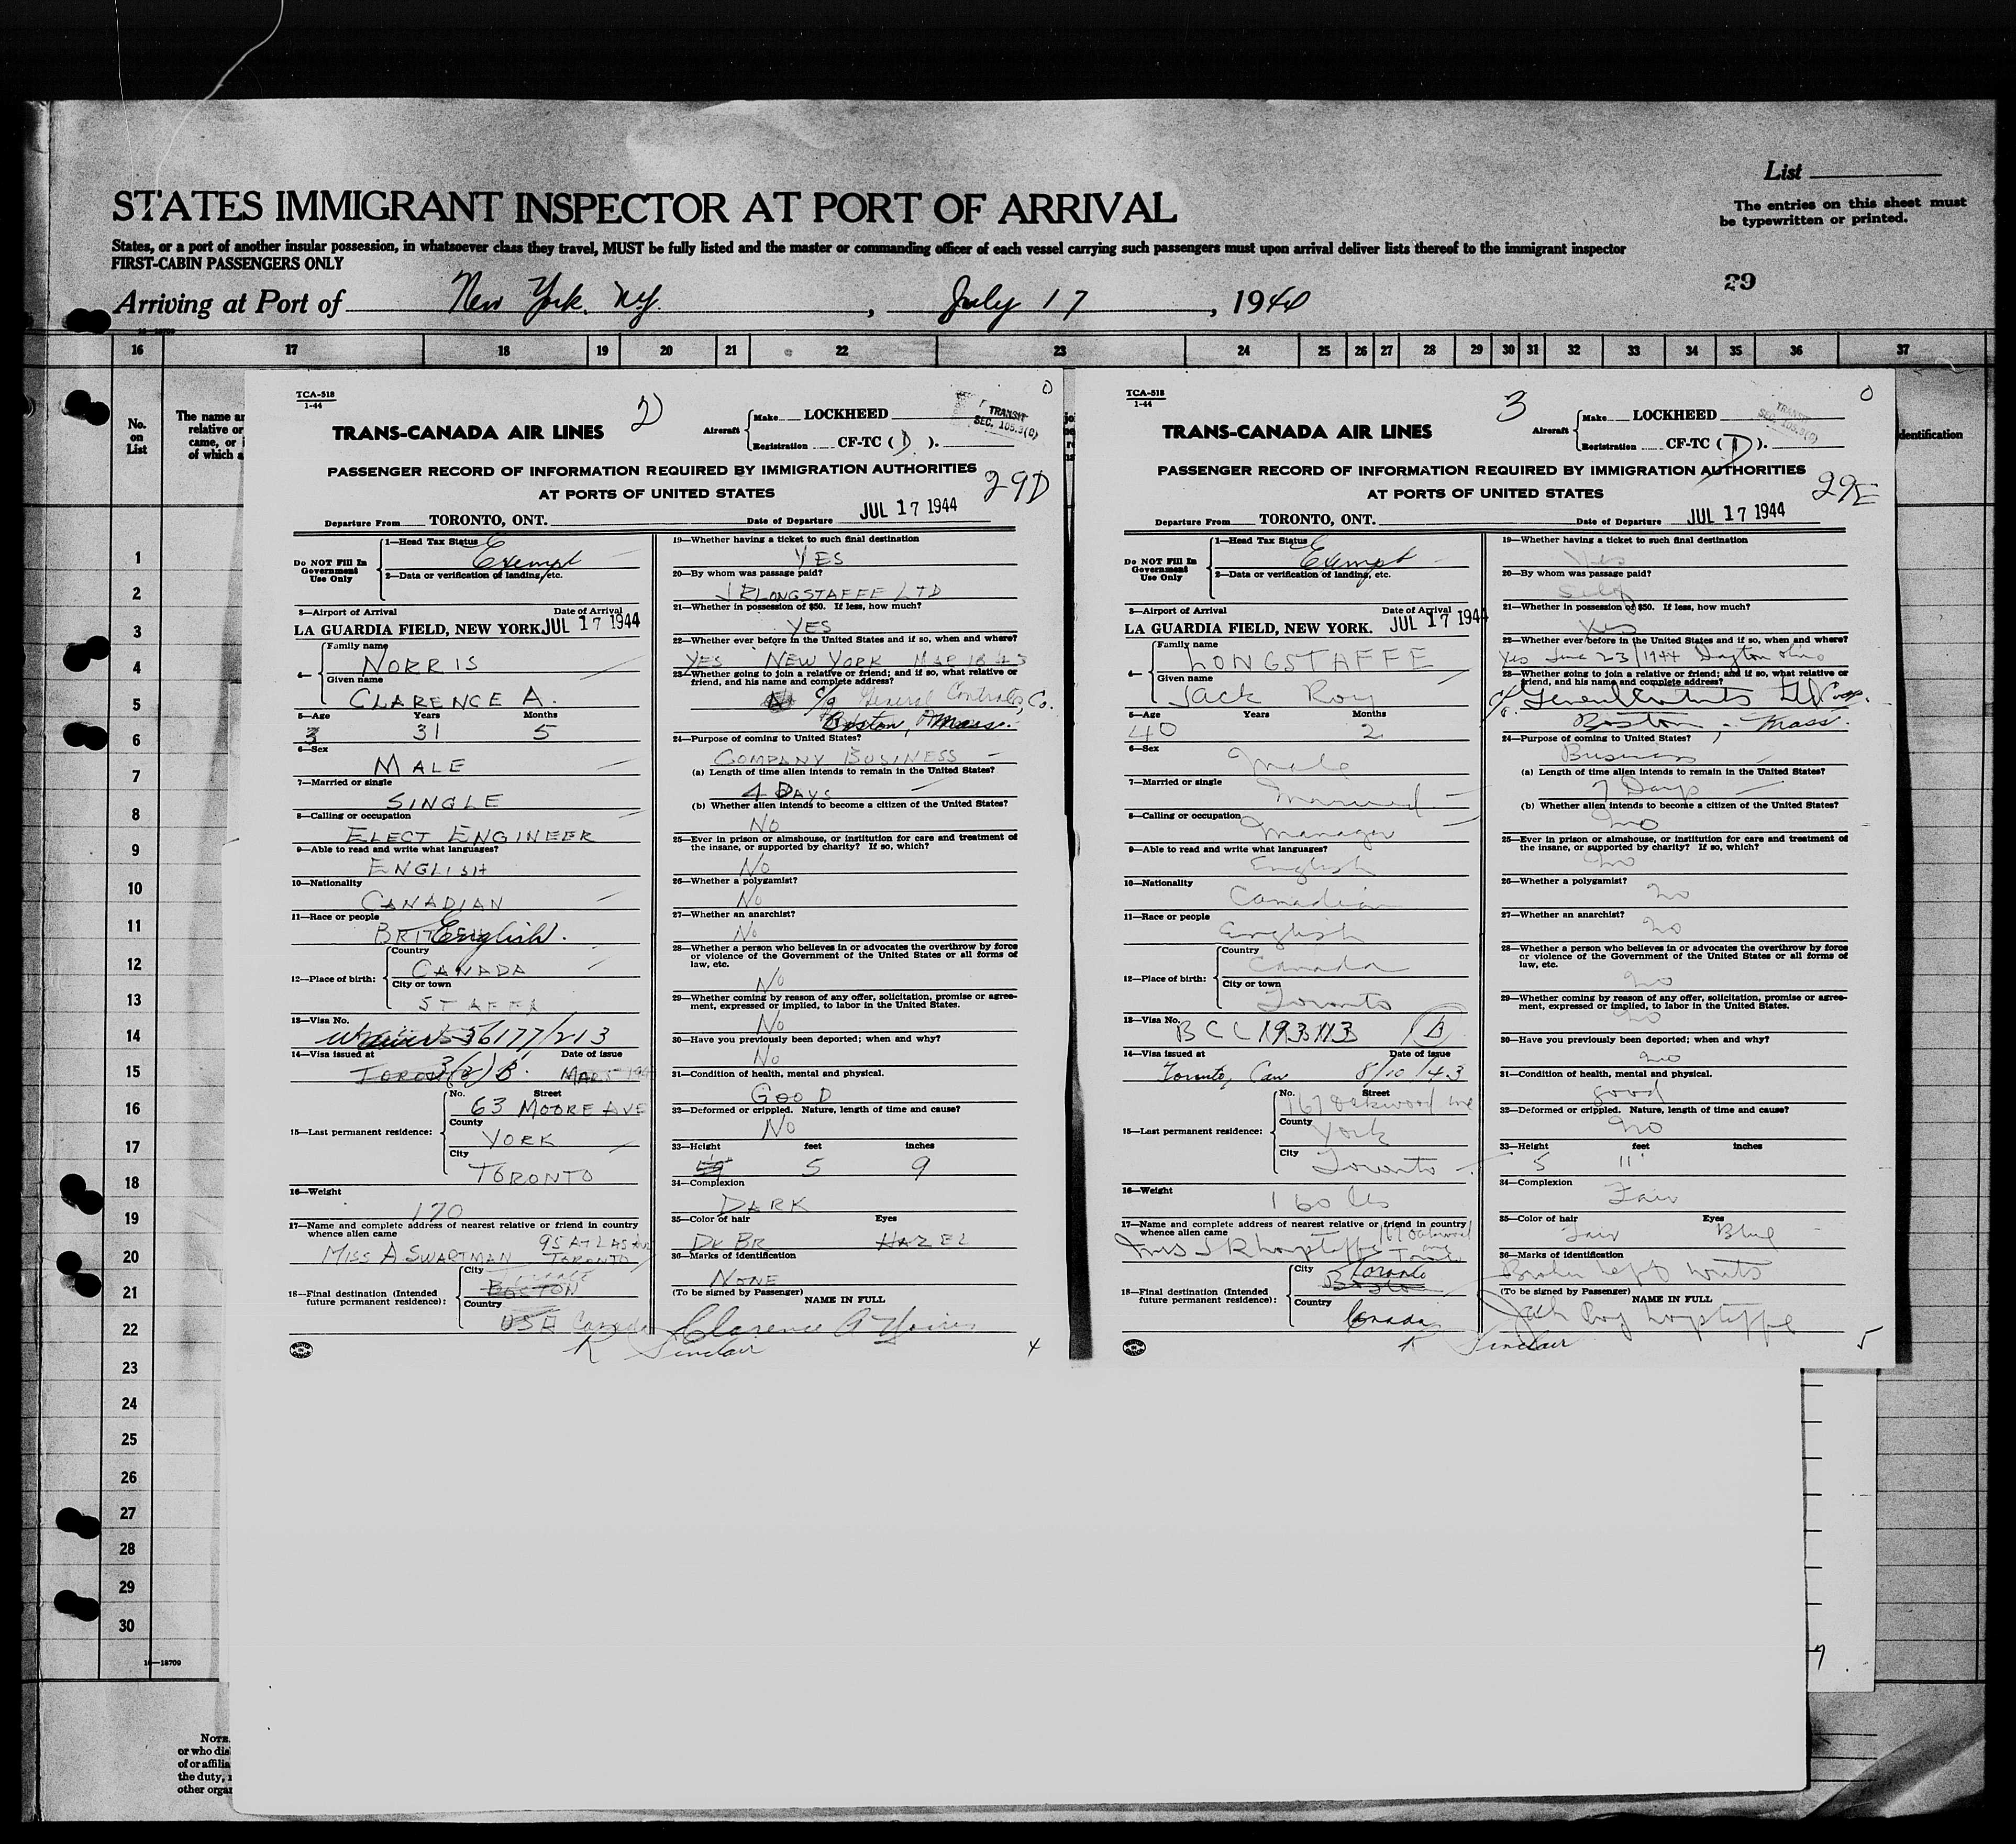 List
STATES IMMIGRANT INSPECTOR AT PORT OF ARRIVAL
The entries on this sheet must
be typewritten or printed.
States, or a port of another insular possession, in whatsoever class they travel, MUST be fully listed and the master or commanding officer of each vessel carrying such passengers must upon arrival deliver lists thereof to the immigrant inspector
FIRST-CABIN PASSENGERS ONLY
29
Arriving at Port of New York, N.Y., July 17, 1944
16 17 18 19 20 21 22 23 24 25 26 27 28 29 30 31 32 33 34 35 36 37
No.
on
List
The name an
relative or
came, or i
of which a
identification
1
2
3
4
5
6
7
8
9
10
11
12
13
14
15
16
17
18
19
20
21
22
23
24
25
26
27
28
29
30
16—18709
NOTE.
or who dis
of or affilia
the duty,
other organ
TCA-518
1-44
2
0
TRANS-CANADA AIR LINES
Aircraft
Make LOCKHEED
Registration CF-TC ( D ).
TRANSIT
SEC. 105.3(C)
PASSENGER RECORD OF INFORMATION REQUIRED BY IMMIGRATION AUTHORITIES
AT PORTS OF UNITED STATES
29D
Departure From TORONTO, ONT. Date of Departure JUL 17 1944
Do NOT Fill In
Government
Use Only
1—Head Tax Status
Exempt
2—Data or verification of landing, etc.
3—Airport of Arrival Date of Arrival
LA GUARDIA FIELD, NEW YORK. JUL 17 1944
4— Family name
NORRIS
Given name
CLARENCE A.
5—Age Years Months
3 31 5
6—Sex
MALE
7—Married or single
SINGLE
8—Calling or occupation
ELECT ENGINEER
9—Able to read and write what languages?
ENGLISH
10—Nationality
CANADIAN
11—Race or people
BRIT English.
12—Place of birth:
Country
CANADA
City or town
STAFFA
13—Visa No.
177/213
14—Visa issued at Date of issue
TORON 3(2) B.
15—Last permanent residence:
No. Street
63 MOORE AVE
County
YORK
City
TORONTO
16—Weight
170
17—Name and complete address of nearest relative or friend in country
whence alien came
MISS A. SWARTMAN 95 ATLAS AVE
TORONTO
18—Final destination (Intended
future permanent residence):
City
BOSTON
Country
USA Canada
19—Whether having a ticket to such final destination
YES
20—By whom was passage paid?
J R LONGSTAFFE LTD
21—Whether in possession of $50. If less, how much?
YES
22—Whether ever before in the United States and if so, when and where?
YES NEW YORK MAR 18 43
23—Whether going to join a relative or friend; and if so, what relative or
friend, and his name and complete address?
c/o General Controls Co.
Boston, Mass.
24—Purpose of coming to United States?
COMPANY BUSINESS
(a) Length of time alien intends to remain in the United States?
4 DAYS
(b) Whether alien intends to become a citizen of the United States?
NO
25—Ever in prison or almshouse, or institution for care and treatment of
the insane, or supported by charity? If so, which?
NO
26—Whether a polygamist?
NO
27—Whether an anarchist?
NO
28—Whether a person who believes in or advocates the overthrow by force
or violence of the Government of the United States or all forms of
law, etc.
NO
29—Whether coming by reason of any offer, solicitation, promise or agree-
ment, expressed or implied, to labor in the United States.
NO
30—Have you previously been deported; when and why?
NO
31—Condition of health, mental and physical.
GOOD
32—Deformed or crippled. Nature, length of time and cause?
NO
33—Height feet inches
5 9
34—Complexion
DARK
35—Color of hair Eyes
DK BR HAZEL
36—Marks of identification
NONE
(To be signed by Passenger)
NAME IN FULL
Clarence A Norris
K Sinclair
4
TCA-518
1-44
3
0
TRANS-CANADA AIR LINES
Aircraft
Make LOCKHEED
Registration CF-TC ( D ).
TRANSIT
SEC. 105.3(C)
PASSENGER RECORD OF INFORMATION REQUIRED BY IMMIGRATION AUTHORITIES
AT PORTS OF UNITED STATES
29E
Departure From TORONTO, ONT. Date of Departure JUL 17 1944
Do NOT Fill In
Government
Use Only
1—Head Tax Status
Exempt
2—Data or verification of landing, etc.
3—Airport of Arrival Date of Arrival
LA GUARDIA FIELD, NEW YORK. JUL 17 1944
4— Family name
LONGSTAFFE
Given name
Jack Roy
5—Age Years Months
40 2
6—Sex
Male
7—Married or single
Married
8—Calling or occupation
Manager
9—Able to read and write what languages?
English
10—Nationality
Canadian
11—Race or people
English
12—Place of birth:
Country
Canada
City or town
Toronto
13—Visa No.
BCC 193113 B
14—Visa issued at Date of issue
Toronto, Can 8/10/43
15—Last permanent residence:
No. Street
167 Oakwood Ave
County
York
City
Toronto
16—Weight
160 lbs
17—Name and complete address of nearest relative or friend in country
whence alien came
Mrs J R Longstaffe 167 Oakwood
Ave
18—Final destination (Intended
future permanent residence):
City
Toronto
Boston
Country
Canada
19—Whether having a ticket to such final destination
Yes
20—By whom was passage paid?
Self
21—Whether in possession of $50. If less, how much?
Yes
22—Whether ever before in the United States and if so, when and where?
Yes June 23/1944 Dayton Ohio
23—Whether going to join a relative or friend; and if so, what relative or
friend, and his name and complete address?
c/o General Controls
Boston, Mass.
24—Purpose of coming to United States?
Business
(a) Length of time alien intends to remain in the United States?
7 Days
(b) Whether alien intends to become a citizen of the United States?
no
25—Ever in prison or almshouse, or institution for care and treatment of
the insane, or supported by charity? If so, which?
no
26—Whether a polygamist?
no
27—Whether an anarchist?
no
28—Whether a person who believes in or advocates the overthrow by force
or violence of the Government of the United States or all forms of
law, etc.
no
29—Whether coming by reason of any offer, solicitation, promise or agree-
ment, expressed or implied, to labor in the United States.
no
30—Have you previously been deported; when and why?
no
31—Condition of health, mental and physical.
good
32—Deformed or crippled. Nature, length of time and cause?
no
33—Height feet inches
5 11
34—Complexion
Fair
35—Color of hair Eyes
Fair Blue
36—Marks of identification
Broken left
(To be signed by Passenger)
NAME IN FULL
Jack Roy Longstaffe
K Sinclair
5